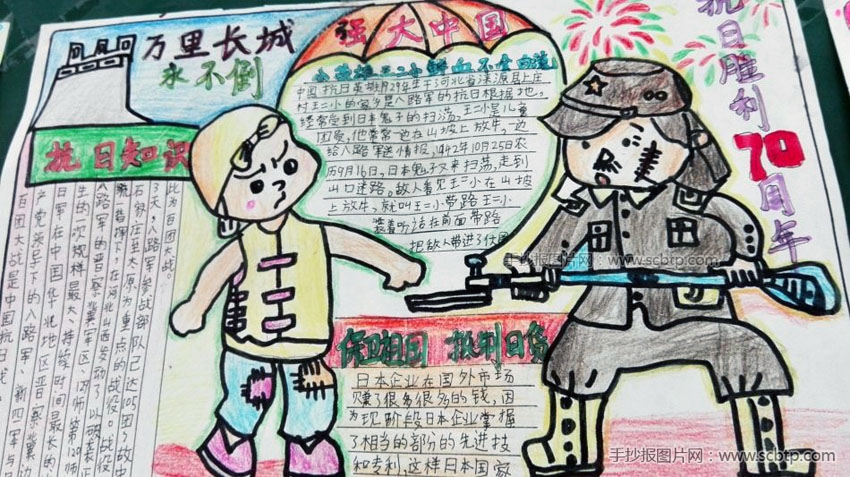 万里长城
永不倒
强大中国
抗日胜利70周年
抗日知识
小英雄王二小鲜血不会白流
中国抗日英雄1929年生于河北省涞源县上庄
村王二小的家乡是八路军的抗日根据地,
经常受到日本鬼子的扫荡,王二小是儿童
团员,他常常一边在山坡上放牛,一边
给八路军送情报,1942年10月25日农
历9月16日,日本鬼子又来扫荡,走到
山口迷路。敌人看见王二小在山坡
上放牛,就叫王二小带路王二小
装着听话在前面带路
把敌人带进了伏
此为百团大战。
了天,八路军参战部队已达105团,故中
石家庄至太原为重点的战役。战役
八路军的晋察冀军区、
生的一次规模最大、持续时间最长的
日军在中国华北地区晋察冀边
产党领导下的八路军、新四军与日
百团大战是中国抗日战
保卫祖国 抵制日货
日本企业在国外市场
赚了很多很多的钱,因
为现阶段日本企业掌握
了相当的部分的先进技
和专利,这样日本国家
手抄报图片网:www.scbtp.com
手抄报图片网:www.scbtp.com